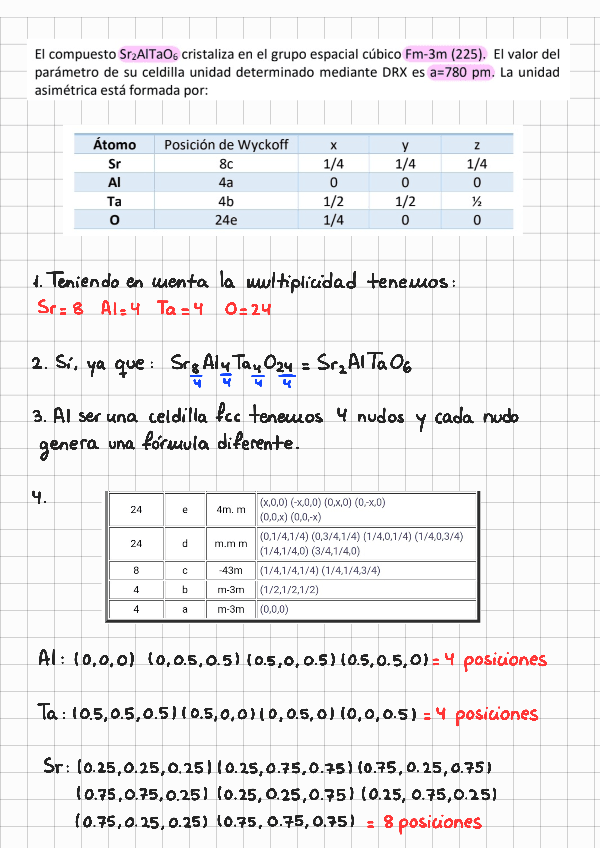 El compuesto Sr₂AlTaO₆ cristaliza en el grupo espacial cúbico Fm-3m (225). El valor del
parámetro de su celdilla unidad determinado mediante DRX es a=780 pm. La unidad
asimétrica está formada por:
Átomo Posición de Wyckoff x y z
Sr 8c 1/4 1/4 1/4
Al 4a 0 0 0
Ta 4b 1/2 1/2 ½
O 24e 1/4 0 0
1. Teniendo en menta la multiplicidad tenemos:
Sr=8 Al=4 Ta=4 O=24
2. Sí, ya que: Sr8/4 Al4/4 Ta4/4 O24/4 = Sr₂AlTaO₆
3. Al ser una celdilla fcc tenemos 4 nudos y cada nudo
genera una fórmula diferente.
4.
24 e 4m. m (x,0,0) (-x,0,0) (0,x,0) (0,-x,0)
(0,0,x) (0,0,-x)
24 d m.m m (0,1/4,1/4) (0,3/4,1/4) (1/4,0,1/4) (1/4,0,3/4)
(1/4,1/4,0) (3/4,1/4,0)
8 c -43m (1/4,1/4,1/4) (1/4,1/4,3/4)
4 b m-3m (1/2,1/2,1/2)
4 a m-3m (0,0,0)
Al: (0,0,0) (0,0.5,0.5) (0.5,0,0.5) (0.5,0.5,0) = 4 posiciones
Ta: (0.5,0.5,0.5) (0.5,0,0) (0,0.5,0) (0,0,0.5) = 4 posiciones
Sr: (0.25,0.25,0.25) (0.25,0.75,0.75) (0.75,0.25,0.75)
(0.75,0.75,0.25) (0.25,0.25,0.75) (0.25,0.75,0.25)
(0.75,0.25,0.25) (0.75,0.75,0.75) = 8 posiciones